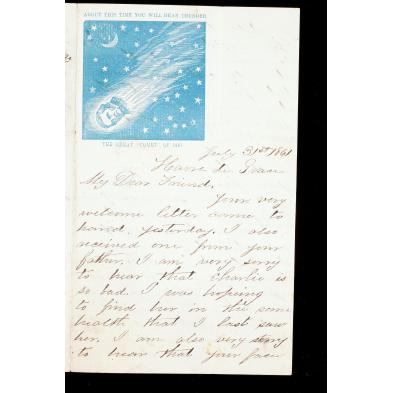 ABOUT THIS TIME YOU WILL HEAR THUNDER.
THE GREAT "COMET" OF 1861
July 31st 1861
Havre de Grace
My Dear Friend,
Your very
welcome letter came to
hand, yesterday. I also
received one from your
father. I am very sorry
to hear that Charlie is
so bad. I was hoping
to find her in the same
health that I last saw
her. I am also very sorry
to hear that your face